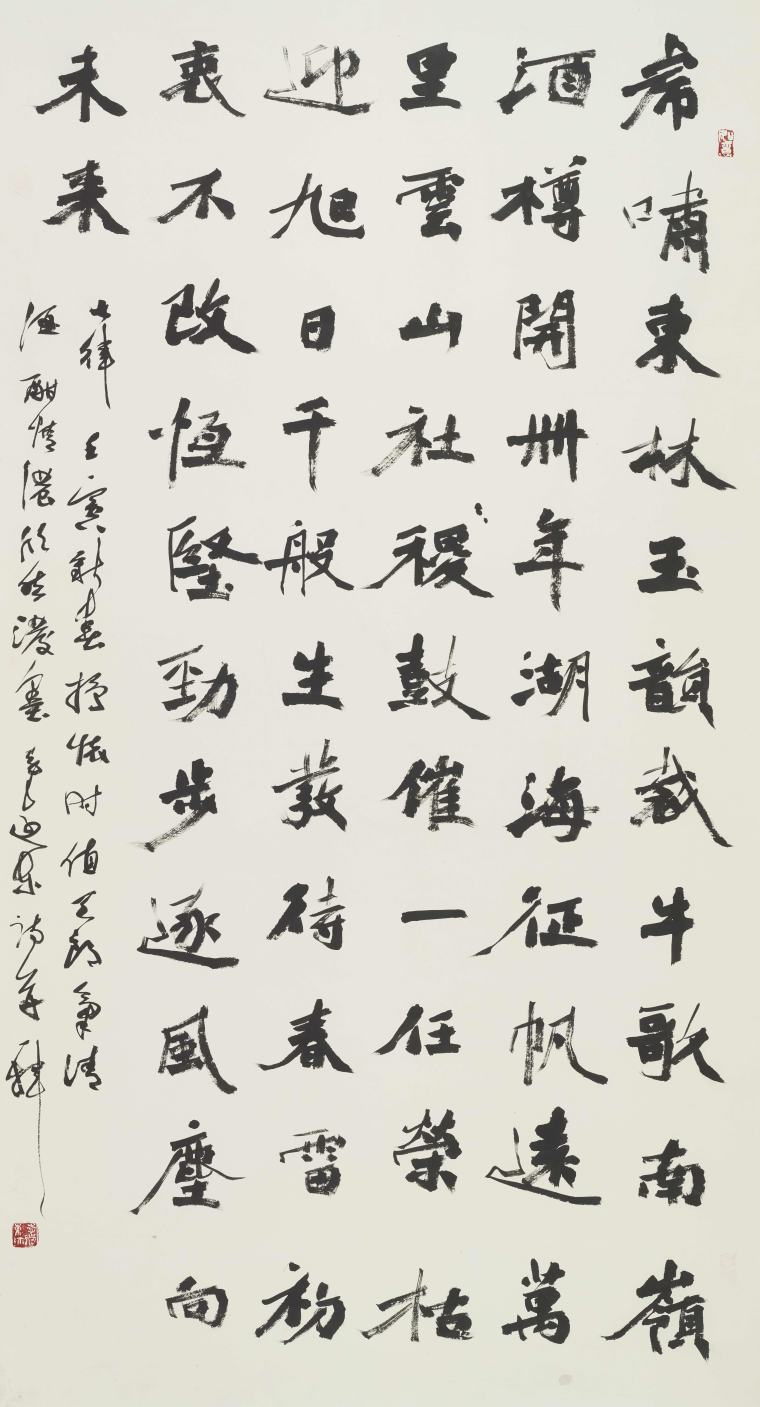 虎嘯東林玉韻載牛歌南嶺
酒樽開卅年湖海征帆遠萬
里雲山社稷鼓催一任榮枯
迎旭日千般生發待春雷初
衷不改恆堅勁步逐風塵向
未來
七律 壬寅新春抒懷時值天朗氣清
酒酣情濃欣然潑墨 詩并